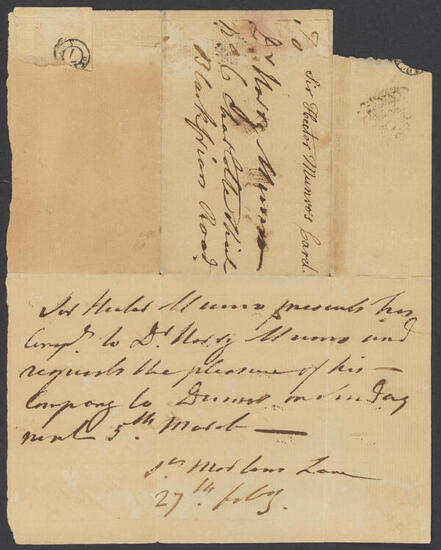 To
Sir Hector Munro's Card.
Dr Harry Munro
No 6 Charlotte
Blackfriars Road
Sir Hector Munro presents his
Compts to Dr Harry Munro and
requests the pleasure of his —
Company to Dinner on Sunday
next 5th March —
St Martins Lane
27th feby.